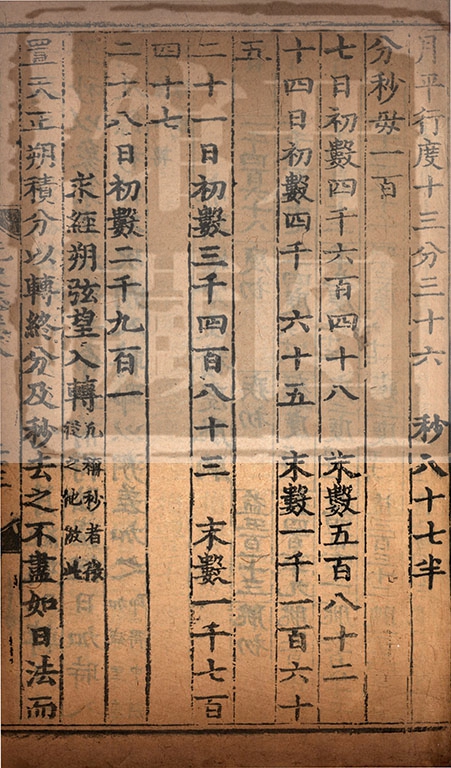 月平行度十三分三十六　秒八十七半
分秒母一百
七日初數四千六百四十八　末數五百八十二
十四日初數四千　六十五　末數一千一百六十
五
二十一日初數三千四百八十三　末數一千七百
四十七
二十八日初數二千九百一
求經朔弦望入轉凡稱秒者從從之他倣此
置天正朔積分以轉終分及秒去之不盡如日法而